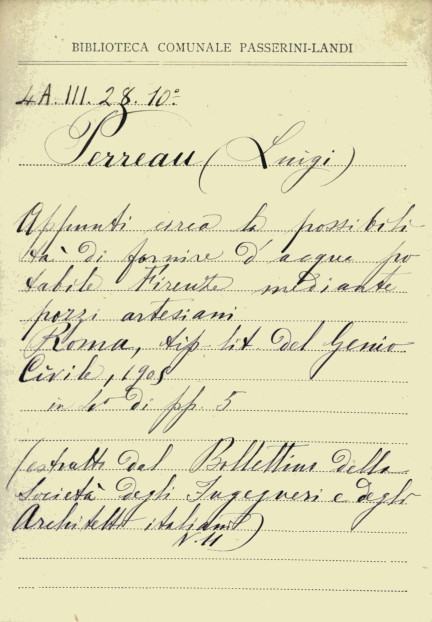 BIBLIOTECA COMUNALE PASSERINI-LANDI
4A.III.28.10º
Perreau (Luigi)
Appunti circa la possibili
tà di fornire d'acqua po
tabile Firenze mediante
pozzi artesiani
Roma, tip. lit. del Genio
Civile, 1905
in 4º di pp. 5
(estratto dal Bollettino della
Società degli Ingegneri e degli
Architetti italiani)
N. 11